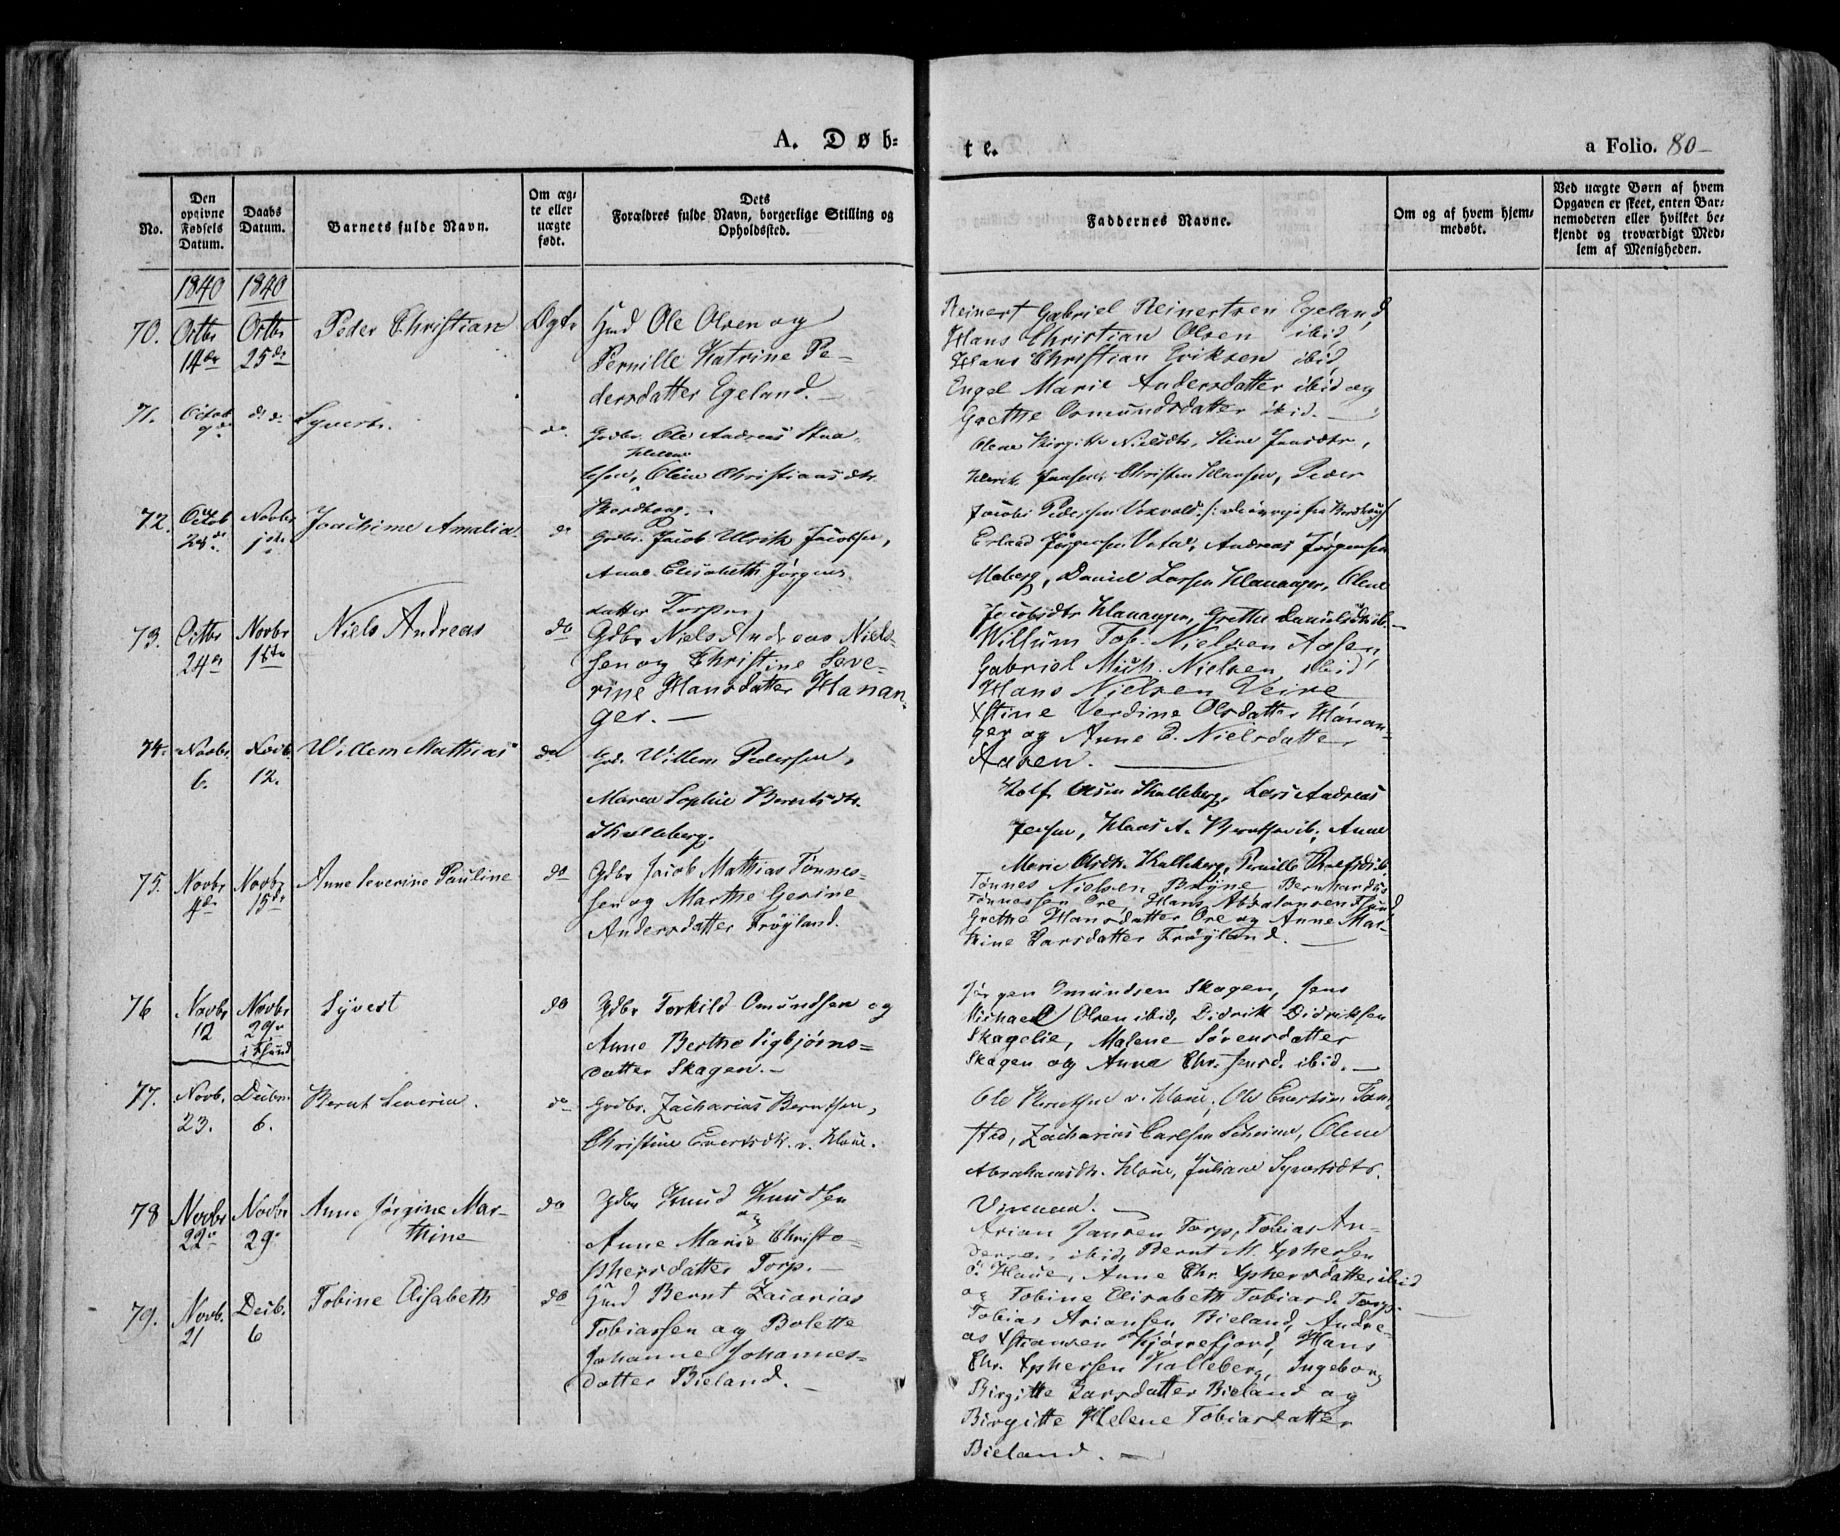 A. Døb=
te.
a Folio. 80-
No.
Den opgivne Fødsels Datum.
Daabs Datum.
Barnets fulde Navn.
Om ægte eller uægte født.
Dets
Forældres fulde Navn, borgerlige Stilling og
Opholdssted.
Faddernes Navne.
Om og af hvem hjem-
medøbt.
Ved uægte Børn af hvem
Opgaven er skeet, enten Bar-
nemoderen eller hvilket be-
kjendt og troværdigt Med-
lem af Menigheden.
1840 1840
70. Octbr 14de Octbr 25de Peder Christian Ægte
Hmd Ole Olsen og
Pernille Katrine Pe-
dersdatter Egeland. -
Reinert Gabriel Reinertsen Egeland,
Hans Christian Olsen ibid,
Hans Christian Eriksen ibid,
Engel Marie Andersdatter ibid og
Grethe Osmundsdatter ibid. -
71. Octob 9de d. d. Syvert. do.
Grdbr. Ole Andreas Staa-
lesen, Helene Oline Christiansdtr.
Olene Birgitte Nielsdtr, Stine Jensdtr,
Henrik Jansen, Christen Hansen, Peder
Jacob Pedersen Voxvold.
72. Octob 24de Novbr 1ste Joachime Amalia. do
Grdbr. Jacob Ulrik Jacobsen,
Anne Elisabeth Jørgens-
datter Torp.
Erland Jørgensen Vatne, Andreas Jørgensen
Moberg, Daniel Larsen Hananger, Olene
Jacobsdtr Hananger, Grethe Danielsdtr ib.
73. Octbr 24de Novbr 1ste Niels Andreas do
Gdbr Niels Andreas Niel-
sen og Christine Seve-
rine Hansdatter Hanan-
ger. -
Willum Tob. Nielsen Aasen,
Gabriel Mich. Nielsen ibid,
Hans Nielsen Veire
Xstine Verdine Olsdatter Hanan-
ger og Anne E. Nielsdatter
Aasen.
74. Novbr 6. Novb. 12. Willem Mathias do
Grd. Willem Pedersen,
Maren Sophie Berntsdtr.
Kalleberg.
Rolf Olsen Kalleberg, Lars Andreas
Jensen, Klaus A. Berntsen ib., Anne
Marie Olsdtr. Kalleberg, Pernille
75. Novbr 4de Novbr 15de Anne Severine Pauline do
Gdbr Jacob Mathias Tønnes-
sen og Marthe Gesine
Andersdatter Frøyland.
Tønnes Nielsen Bryne Bernhardus
Tønnessen Ore, Hans Absalonsen
Grethe Hansdatter Ore og Anne Mar-
thine Larsdatter Frøyland.
76 Novbr 12 Novbr 29de i Fsund Syvert do
Gdbr Torkild Omundsen og
Anne Berthe Sigbjørns=
datter Skagen. -
Jørgen Omundsen Skagen, Jens
Michael Olsen ibid, Didrik Didriksen
Skagelie, Malene Sørensdatter
Skagen og Anna Chr. Jensd. ibid. -
77. Novb. 23. Decbr. 6. Bernt Severin. do
Grdbr. Zacharias Berntsen,
Christine Evertsdtr. v. Haue.
Ole Berntsen v. Haue, Ole Evertsen Tom-
stad, Zacharias Carlsen Scheime, Olene
Abrahamsdtr. Haue, Juliane Syvertsdtr.
78 Novbr 22de Novbr 29de Anne Jørgine Mar-
thine do
Gdbr Knud Knudsen
og
Anne Marie Christo-
phersdatter Torp. -
Arian Jansen Torp, Tobias An-
dersen ibid, Bernt M. Xphersen
ø. Haue, Anne Chr. Xphersdatter ibid
og Tobine Elisabeth Tobiasd. Torp.
79. Novb. 21 Decb. 6 Tobine Elisabeth do
Hmd Bernt Zacarias
Tobiassen og Bolette
Johanne Johannes-
datter Bieland. -
Tobias Ariansen Bieland, Andre-
as Xstiansen Kjørrefjord, Hans
Chr. Xphersen Kalleberg, Ingeborg
Birgitte Larsdatter Bieland og
Birgitte Helene Tobiasdatter
Bieland. -